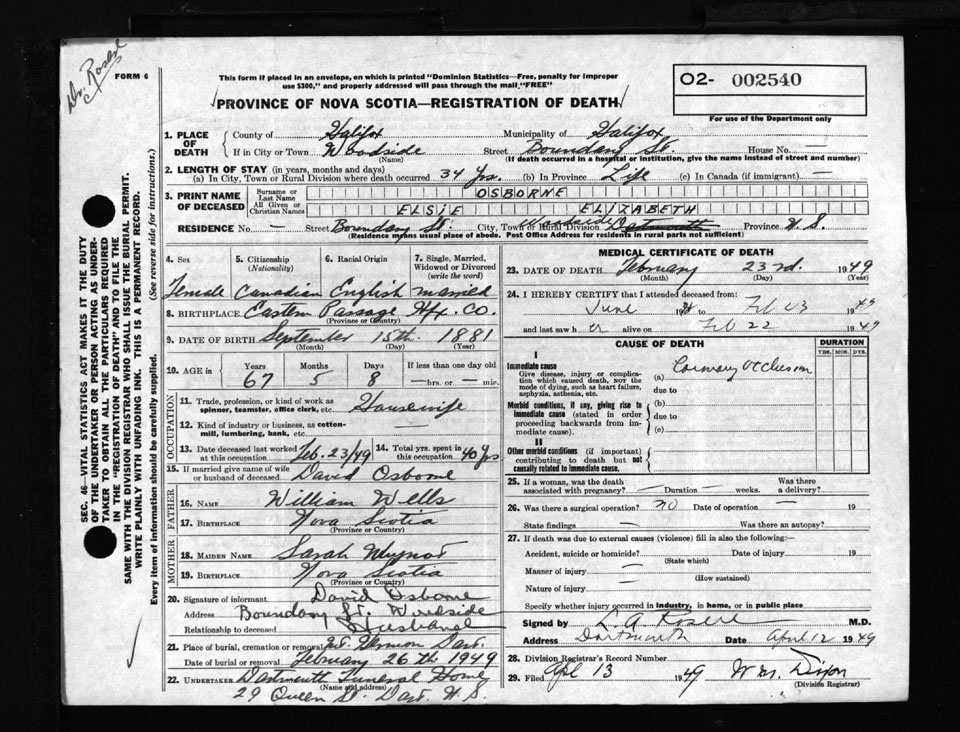 Dr. Rosere
FORM 6
This form if placed in an envelope, on which is printed "Dominion Statistics—Free, penalty for improper
use $300," and properly addressed will pass through the mail "FREE"
PROVINCE OF NOVA SCOTIA—REGISTRATION OF DEATH
O2- 002540
For use of the Department only
SEC. 46—VITAL STATISTICS ACT MAKES IT THE DUTY
OF THE UNDERTAKER OR PERSON ACTING AS UNDER-
TAKER TO OBTAIN ALL THE PARTICULARS REQUIRED
IN THE "REGISTRATION OF DEATH" AND TO FILE THE
SAME WITH THE DIVISION REGISTRAR WHO SHALL ISSUE THE BURIAL PERMIT.
WRITE PLAINLY WITH UNFADING INK. THIS IS A PERMANENT RECORD.
Every item of information should be carefully supplied. (See reverse side for instructions.)
1. PLACE OF DEATH County of Halifax Municipality of Halifax
If in City or Town Woodside Street Boundary St. House No. —
(Name) (If death occurred in a hospital or institution, give the name instead of street and number)
2. LENGTH OF STAY (in years, months and days)
(a) In City, Town or Rural Division where death occurred 34 Yrs. (b) In Province Life (c) In Canada (if immigrant) —
3. PRINT NAME OF DECEASED Surname or Last Name OSBORNE
All Given or Christian Names ELSIE ELIZABETH
RESIDENCE No. — Boundary St. City, Town or Rural Division Woodside Dartmouth Province N.S.
(Residence means usual place of abode. Post Office Address for residents in rural parts not sufficient)
4. Sex 5. Citizenship (Nationality) 6. Racial Origin 7. Single, Married, Widowed or Divorced (write the word)
Female Canadian English married
8. BIRTHPLACE Eastern Passage Hfx. Co.
(Province or Country)
9. DATE OF BIRTH September 15th. 1881
(Month) (Day) (Year)
10. AGE in Years Months Days If less than one day old
67 5 8 —hrs. or — min.
OCCUPATION
11. Trade, profession, or kind of work as spinner, teamster, office clerk, etc. Housewife
12. Kind of industry or business, as cotton-mill, lumbering, bank, etc. —
13. Date deceased last worked at this occupation Feb. 23/49 14. Total yrs. spent in this occupation 40 Yrs
15. If married give name of wife or husband of deceased David Osborne
FATHER
16. NAME William Wells
17. BIRTHPLACE Nova Scotia
(Province or Country)
MOTHER
18. MAIDEN NAME Sarah
19. BIRTHPLACE Nova Scotia
(Province or Country)
20. Signature of informant David Osborne
Address Boundary St. Woodside
Relationship to deceased Husband
21. Place of burial, cremation or removal Mt. Hermon Dart.
Date of burial or removal February 26th 1949
22. UNDERTAKER Dartmouth Funeral Home
(Name and address)
29 Queen St. Dart. N.S.
MEDICAL CERTIFICATE OF DEATH
23. DATE OF DEATH February 23rd. 1949
(Month) (Day) (Year)
24. I HEREBY CERTIFY that I attended deceased from:
June 19 to Feb 23 1949
and last saw h er alive on Feb 22 1949
CAUSE OF DEATH DURATION
YRS. MOS. DYS.
I
Immediate cause
Give disease, injury or complication which caused death, not the mode of dying, such as heart failure, asphyxia, asthenia, etc.
(a) Coronary Occlusion
due to
Morbid conditions, if any, giving rise to immediate cause (stated in order proceeding backwards from immediate cause).
(b)
due to
(c)
II
Other morbid conditions (if important) contributing to death but not causally related to immediate cause.
25. If a woman, was the death associated with pregnancy? — Duration — weeks. Was there a delivery? —
26. Was there a surgical operation? no Date of operation — 19
State findings — Was there an autopsy?
27. If death was due to external causes (violence) fill in also the following:—
Accident, suicide or homicide? Date of injury 19
(State which)
Manner of injury —
(How sustained)
Nature of injury —
Specify whether injury occurred in industry, in home, or in public place
Signed by L. A. Rosere M.D.
Address Dartmouth Date April 12 1949
28. Division Registrar's Record Number
29. Filed Apl 13 1949 Wm. Dixon
(Division Registrar)